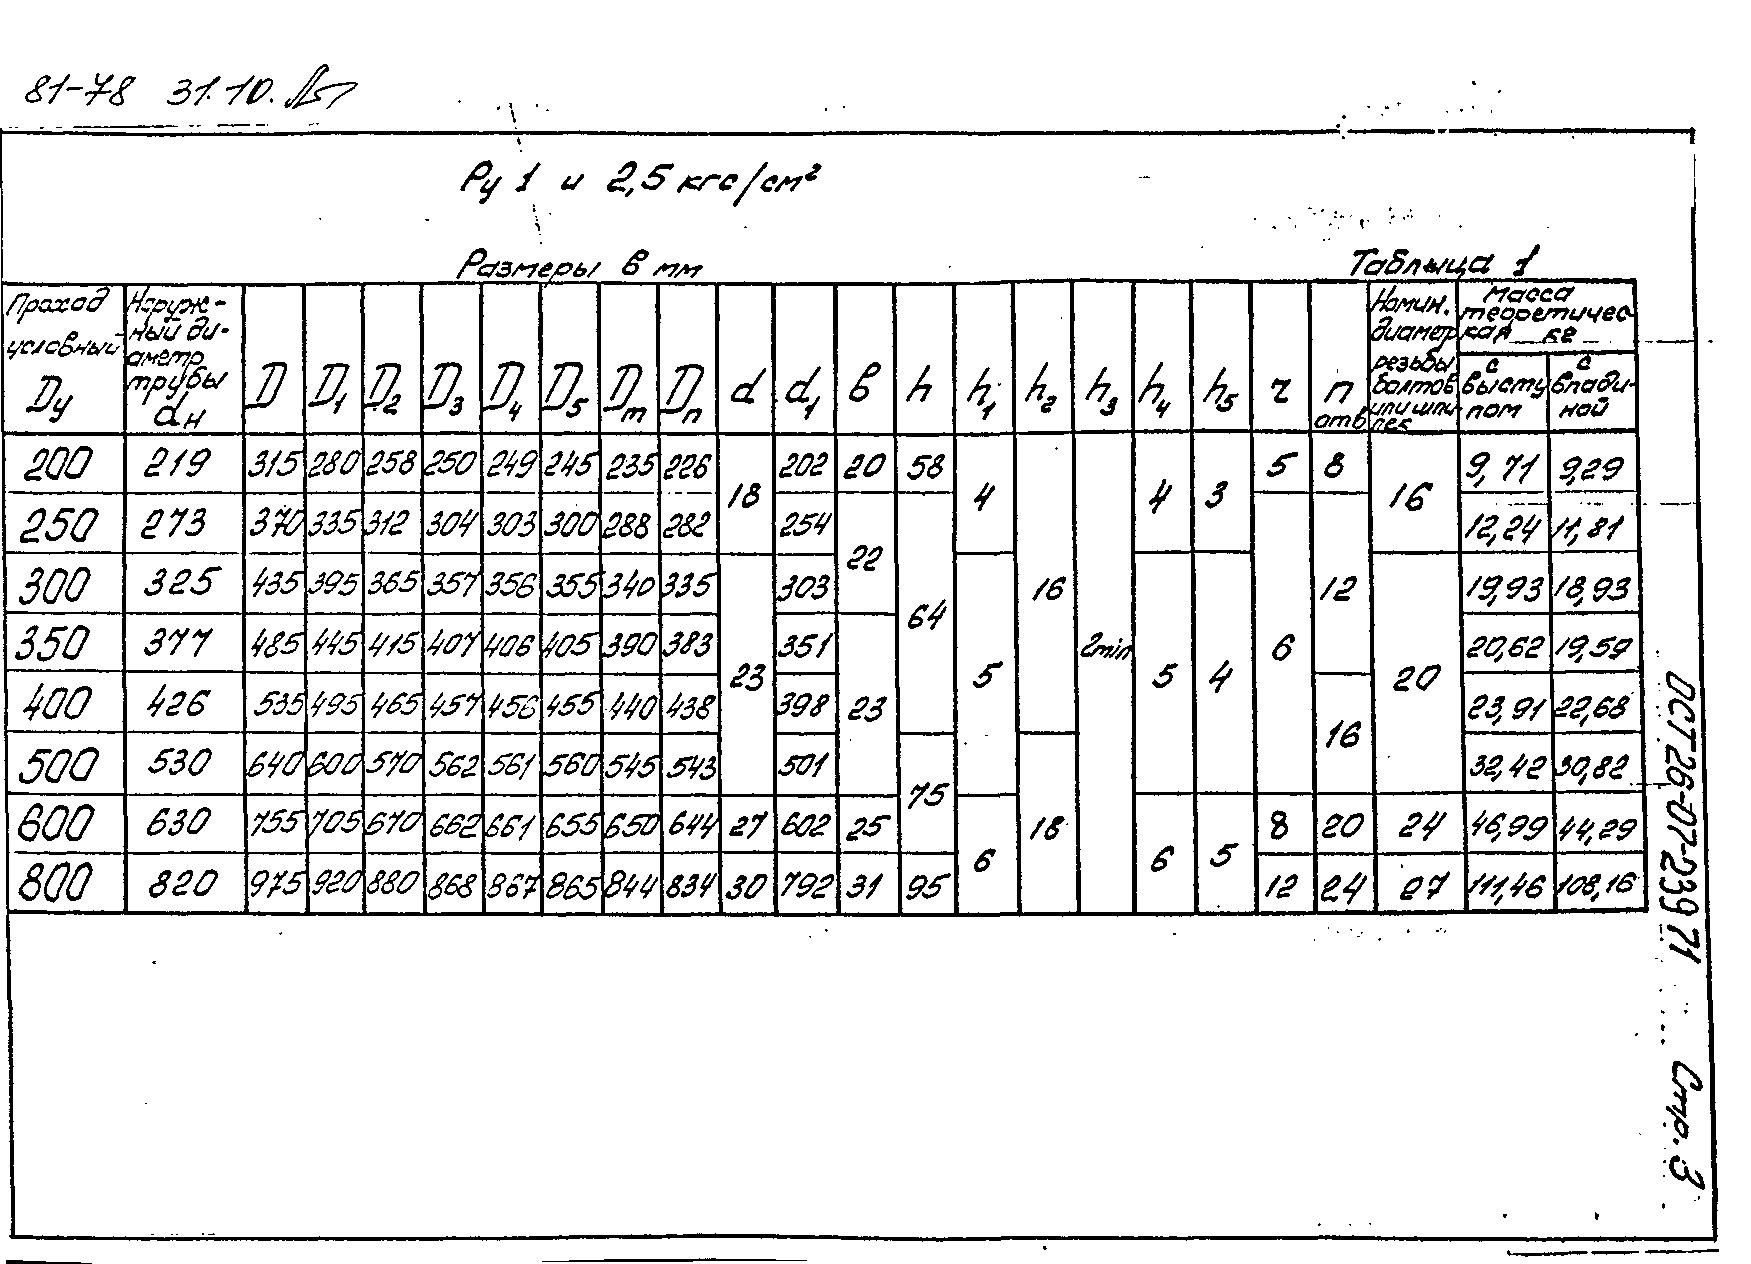 81-78 31.10.
Ру 1 и 2,5 кгс/см²
Размеры в мм Таблица 1
Проход условный Dу | Наружный диаметр трубы dн | D | D1 | D2 | D3 | D4 | D5 | Dm | Dп | d | d1 | в | h | h1 | h2 | h3 | h4 | h5 | r | n отв | Номин. диаметр резьбы болтов или шпилек | Масса теоретическая кг
с выступом | с впадиной
200 219 315 280 258 250 249 245 235 226 18 202 20 58 4 16 2min 4 3 5 8 16 9,71 9,29
250 273 370 335 312 304 303 300 288 282 254 22 64 6 12 12,24 11,81
300 325 435 395 365 357 356 355 340 335 23 303 5 5 4 20 19,93 18,93
350 377 485 445 415 407 406 405 390 383 351 23 20,62 19,59
400 426 535 495 465 457 456 455 440 438 398 16 23,91 22,68
500 530 640 600 570 562 561 560 545 543 501 75 18 32,42 30,82
600 630 755 705 670 662 661 655 650 644 27 602 25 6 6 5 8 20 24 46,99 44,29
800 820 975 920 880 868 867 865 844 834 30 792 31 95 12 24 27 111,46 108,16
ОСТ 26-07-239 71 Стр. 3